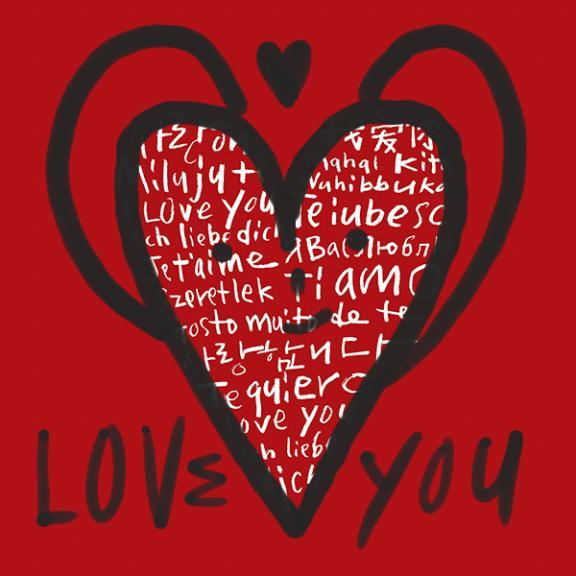 我爱你
Mahal kita
Miluju tě
Vahibbuka
Love you
Te iubesc
Ich liebe dich
Я Вас люблю
Je t'aime
Szeretlek
Ti amo
Gosto muito de te
사랑합니다
Te quiero
Love you
Ich liebe
dich
LOVE YOU